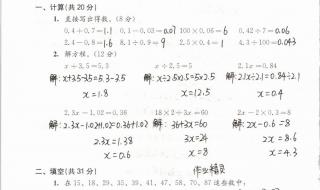 一、计算(共20分)
1. 直接写出得数。(8分)
0.4+0.7=1.1 0.1-0.03=0.07 100×0.06=6 0.42÷0.7=0.6
2.4-0.8=1.6 8.1÷0.9=9 2.5×0.4=1 4.3÷100=0.043
2. 解方程。(12分)
x+3.5=5.3 x÷2.5=5 2.1x=0.84
解:x+3.5-3.5=5.3-3.5 解:x÷2.5×2.5=5×2.5 解:2.1x÷2.1=0.84÷2.1
x=1.8 x=12.5 x=0.4
2.3x-1.02=0.36 18×2+3x=60 2x-0.2×3=8
解:2.3x-1.02+1.02=0.36+1.02 解:36+3x=60 解:2x-0.6=8
2.3x=1.38 3x=24 2x=8.6
x=0.6 x=8 x=4.3
二、填空(共31分)
1. 在15、18、29、35、39、41、47、58、70、87这些数中,